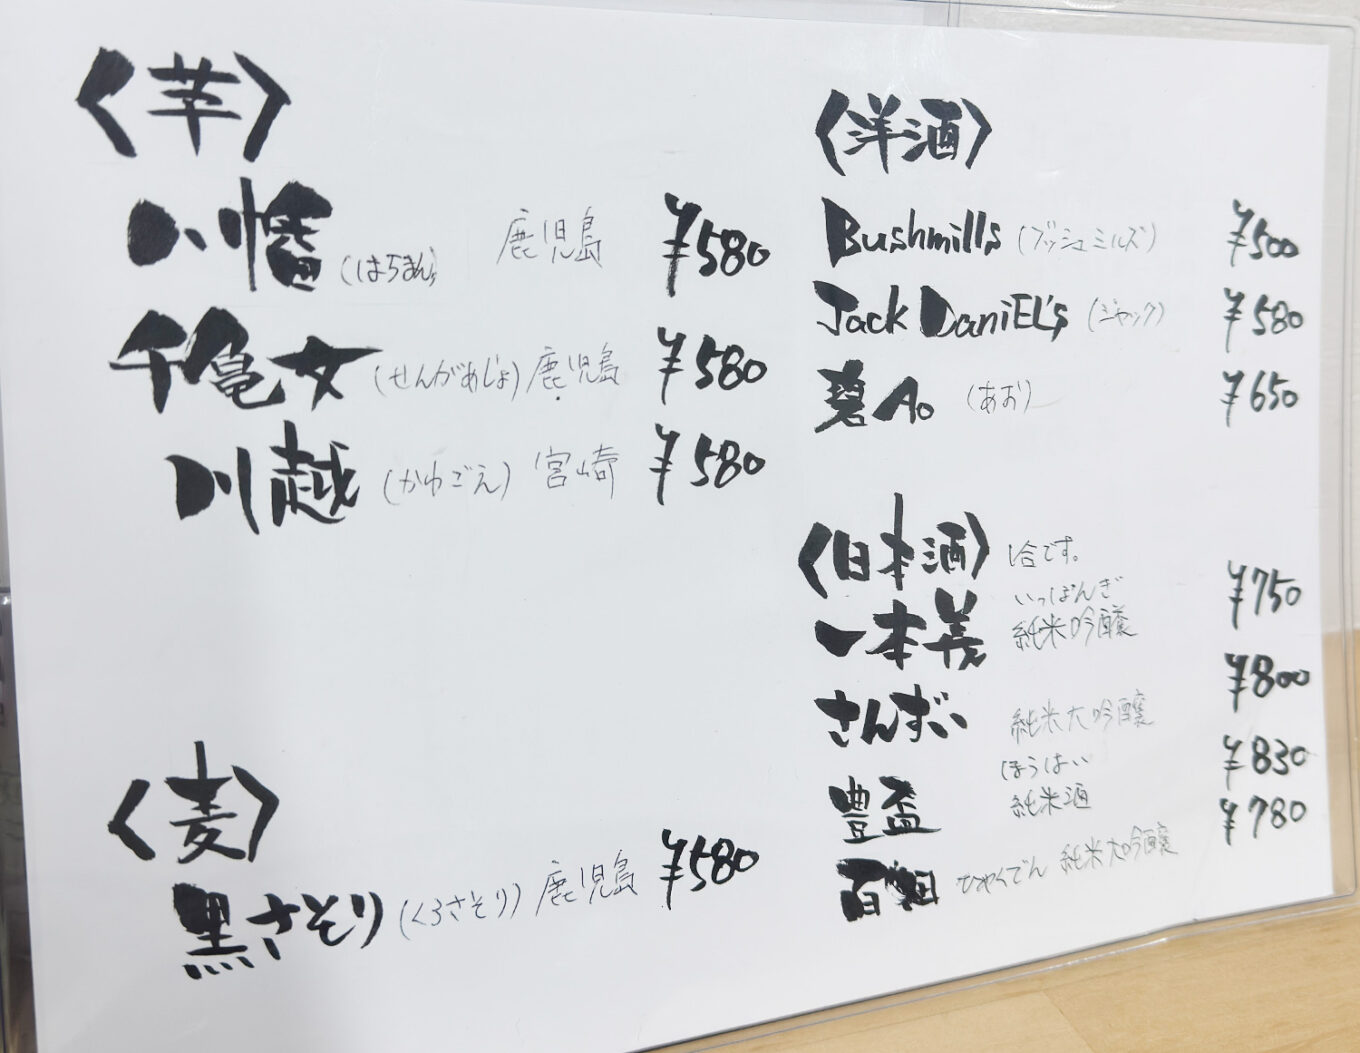 〈芋〉
八幡 (はちまん) 鹿児島 ¥580
千亀女 (せんがめじょ) 鹿児島 ¥580
川越 (かわごえ) 宮崎 ¥580
〈麦〉
黒さそり (くろさそり) 鹿児島 ¥580
〈洋酒〉
Bushmills (ブッシュミルズ) ¥500
Jack DaniEL's (ジャック) ¥580
碧Ao (あお) ¥650
〈日本酒〉 1合です。
いっぽんぎ
一本義 純米吟醸 ¥750
さんずい 純米大吟醸 ¥800
ほうはい
豊盃 純米酒 ¥830
百 ひゃくでん 純米大吟醸 ¥780